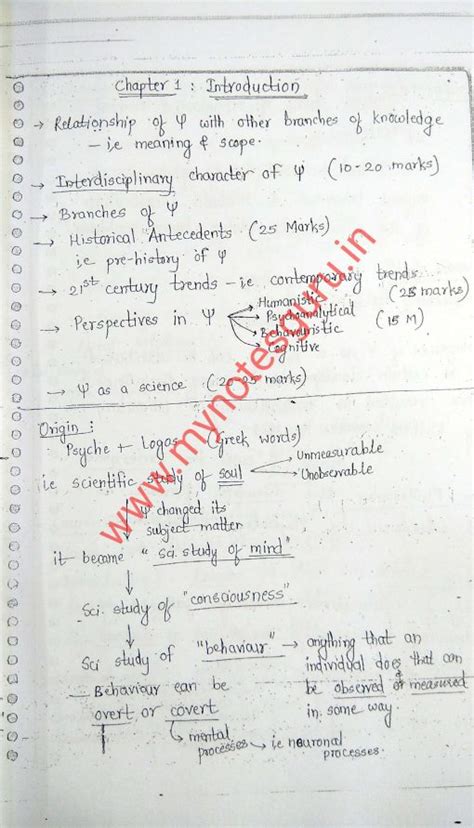 Chapter 1 : Introduction
→ Relationship of ψ with other branches of knowledge
– i.e meaning & scope.
→ Interdisciplinary character of ψ (10-20 marks)
→ Branches of ψ
→ Historical Antecedents (25 Marks)
i.e pre-history of ψ
→ 21st century trends – i.e contemporary trends (25 marks)
→ Perspectives in ψ (15 M)
Humanistic
Psychoanalytical
Behaviouristic
Cognitive
→ ψ as a science (20-25 marks)
Origin :
Psyche + Logos (Greek words)
i.e scientific study of soul
Unmeasurable
Unobservable
ψ changed its
subject matter
it became "sci. study of mind"
Sci. study of "consciousness"
Sci study of "behaviour" → anything that an
individual does that can
be observed or measured
in some way.
– Behaviour can be
overt or covert
mental
processes → i.e neuronal
processes.
www.mynotesguru.in